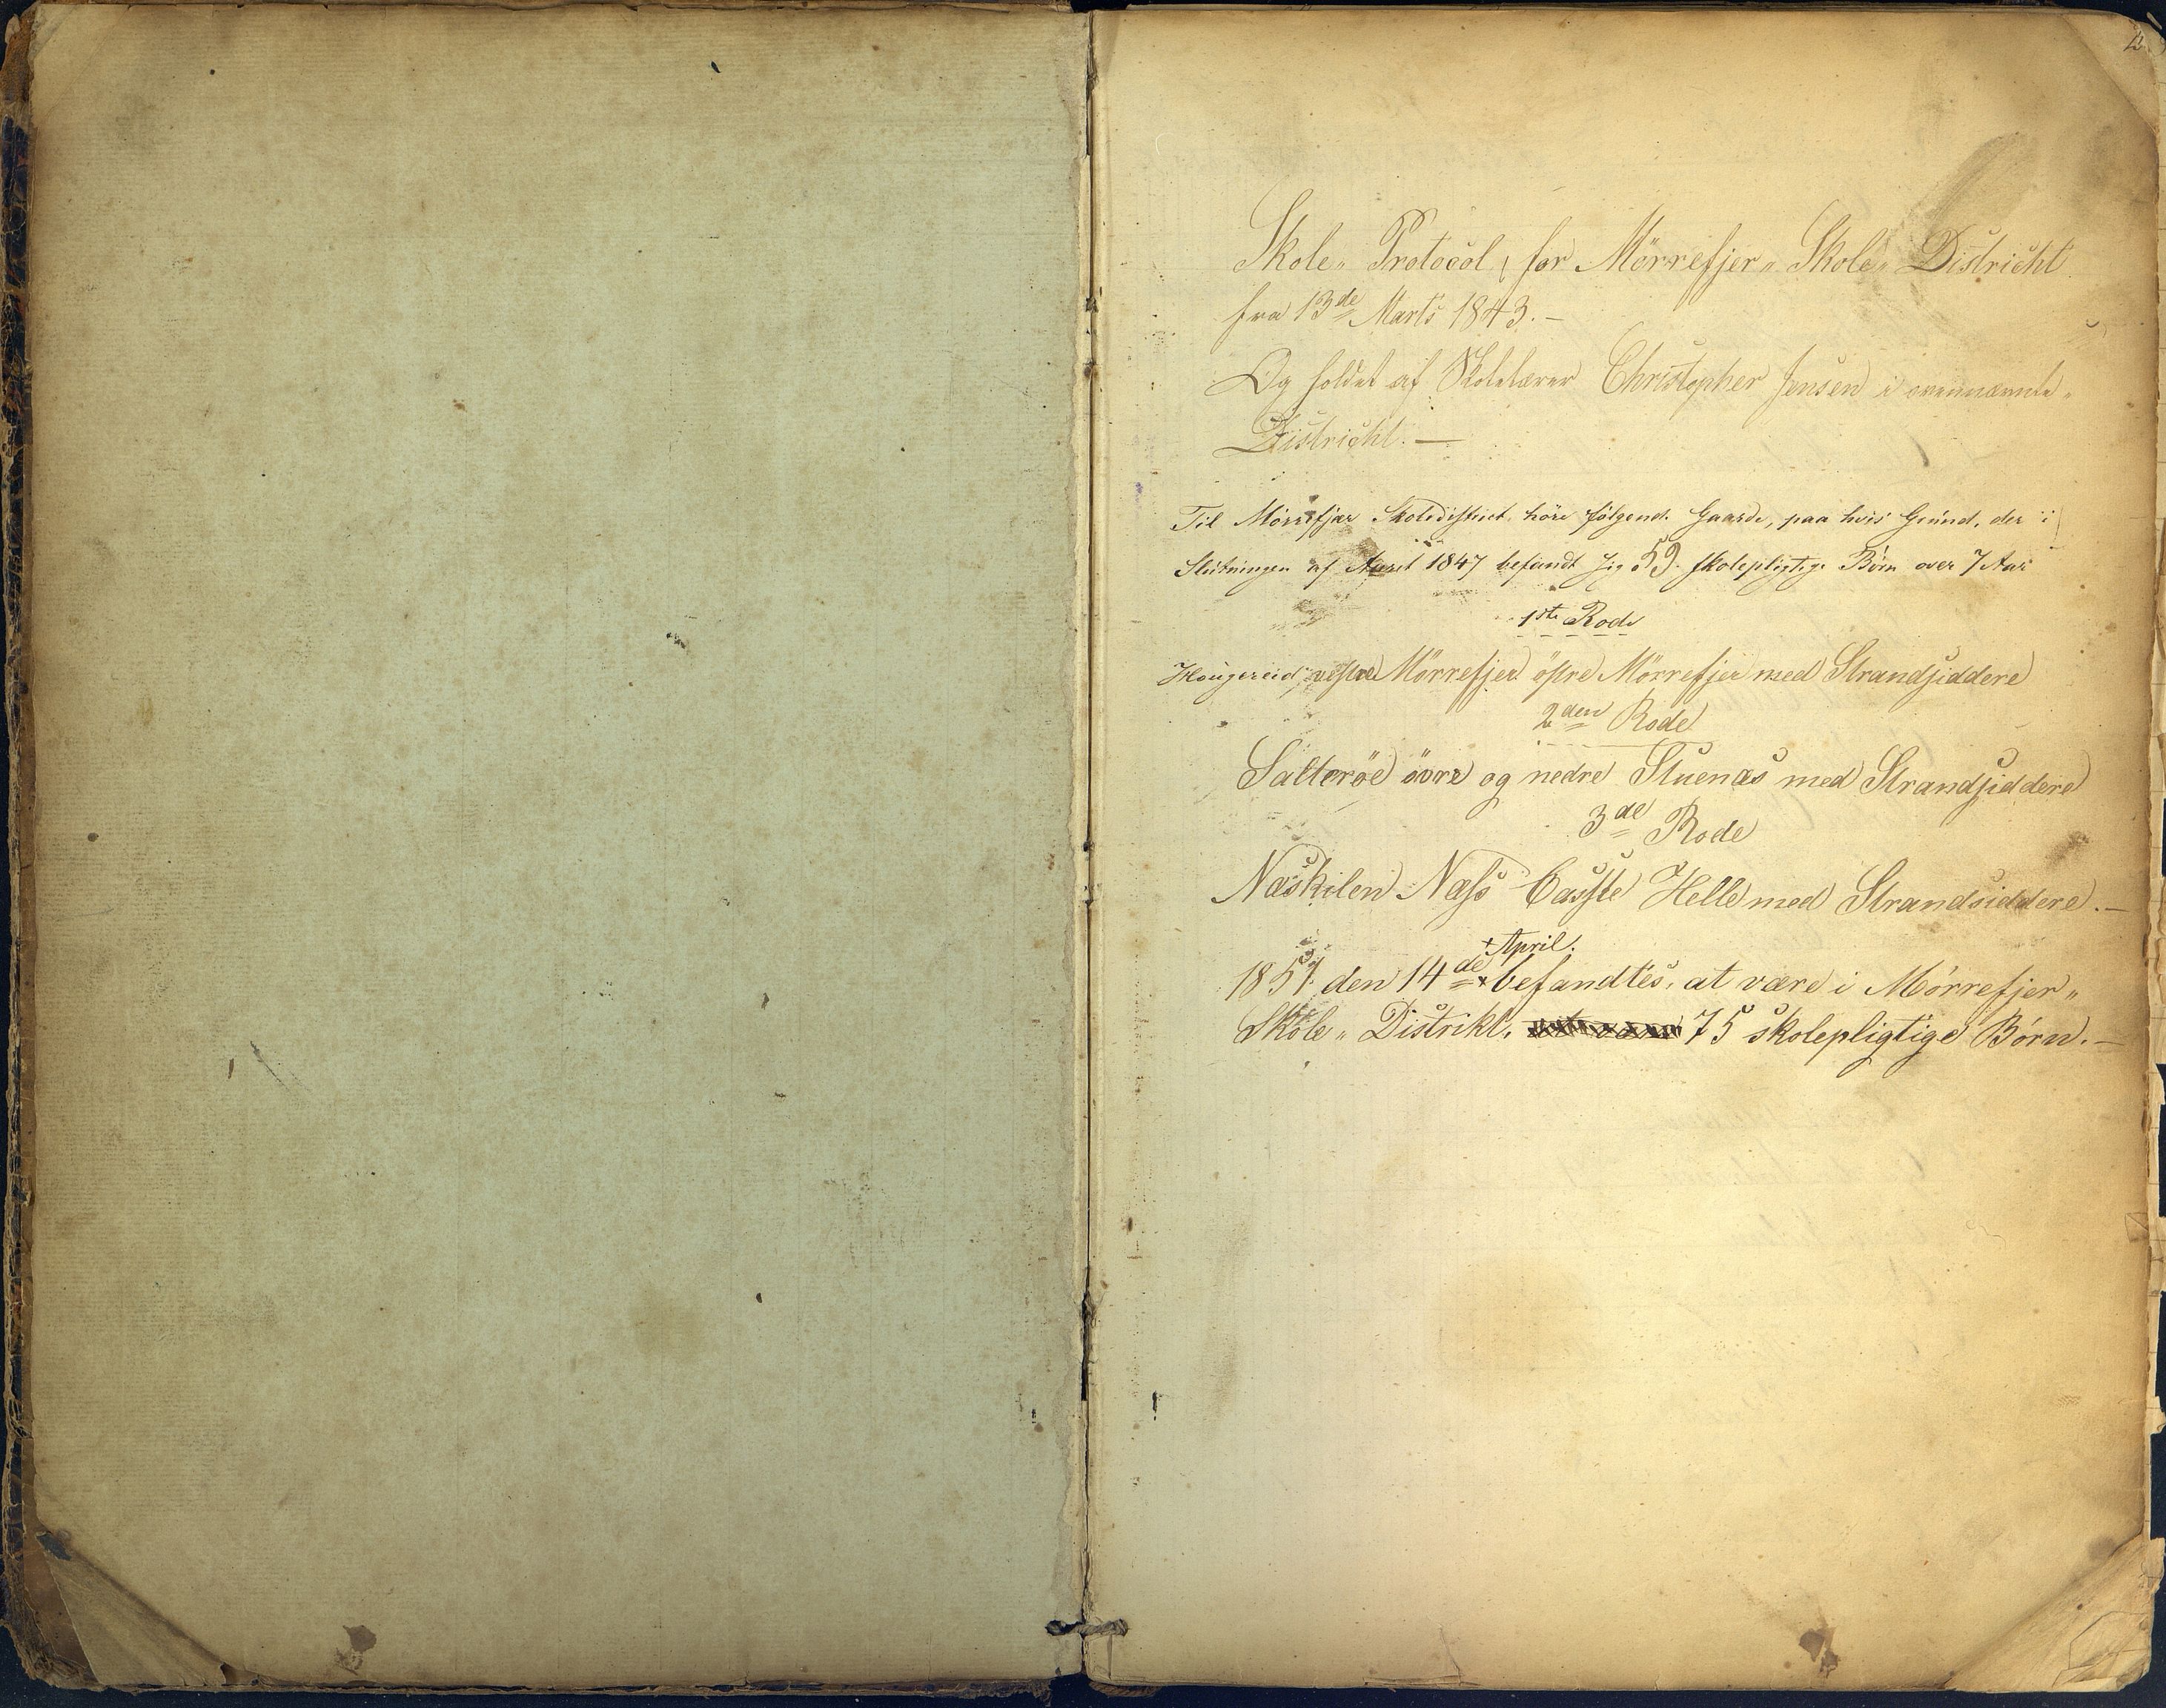 12
Skole„ Protocol, for Mörrefjer„ Skole„ Districht
fra 13de Marts 1843.–
Og holdet af Skolelærer Christopher Jensen i ovennævnte„
Districht.—
Til Mörrefjær Skoledistrict höre følgende Gaarde, paa hvis Grund, der i
Slutningen af Aaret 1847 befandt sig 59 skolepligtige Börn over 7 Aar
1ste Rode
Hougereid, vestre Mörrefjer östre Mörrefjer med Strandsiddere
2den Rode
Salteröe övre og nedre Stuenæs med Strandsiddere
3de Rode
Næskilen Næss Helle med Strandsiddere.–
+ April.
1851 den 14de + befandtes, at være i Mörrefjer„
Skole„ Distrikt, 75 skolepligtige Börn.–